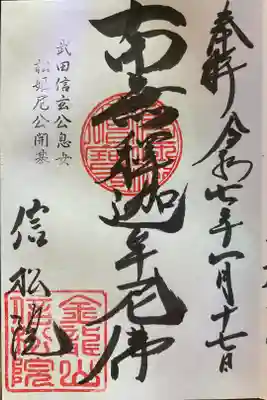 奉拝 令和七年八月十七日
南無釋迦牟尼佛
武田信玄公息女
松姫尼公開基
信松院
金龍山
信松院